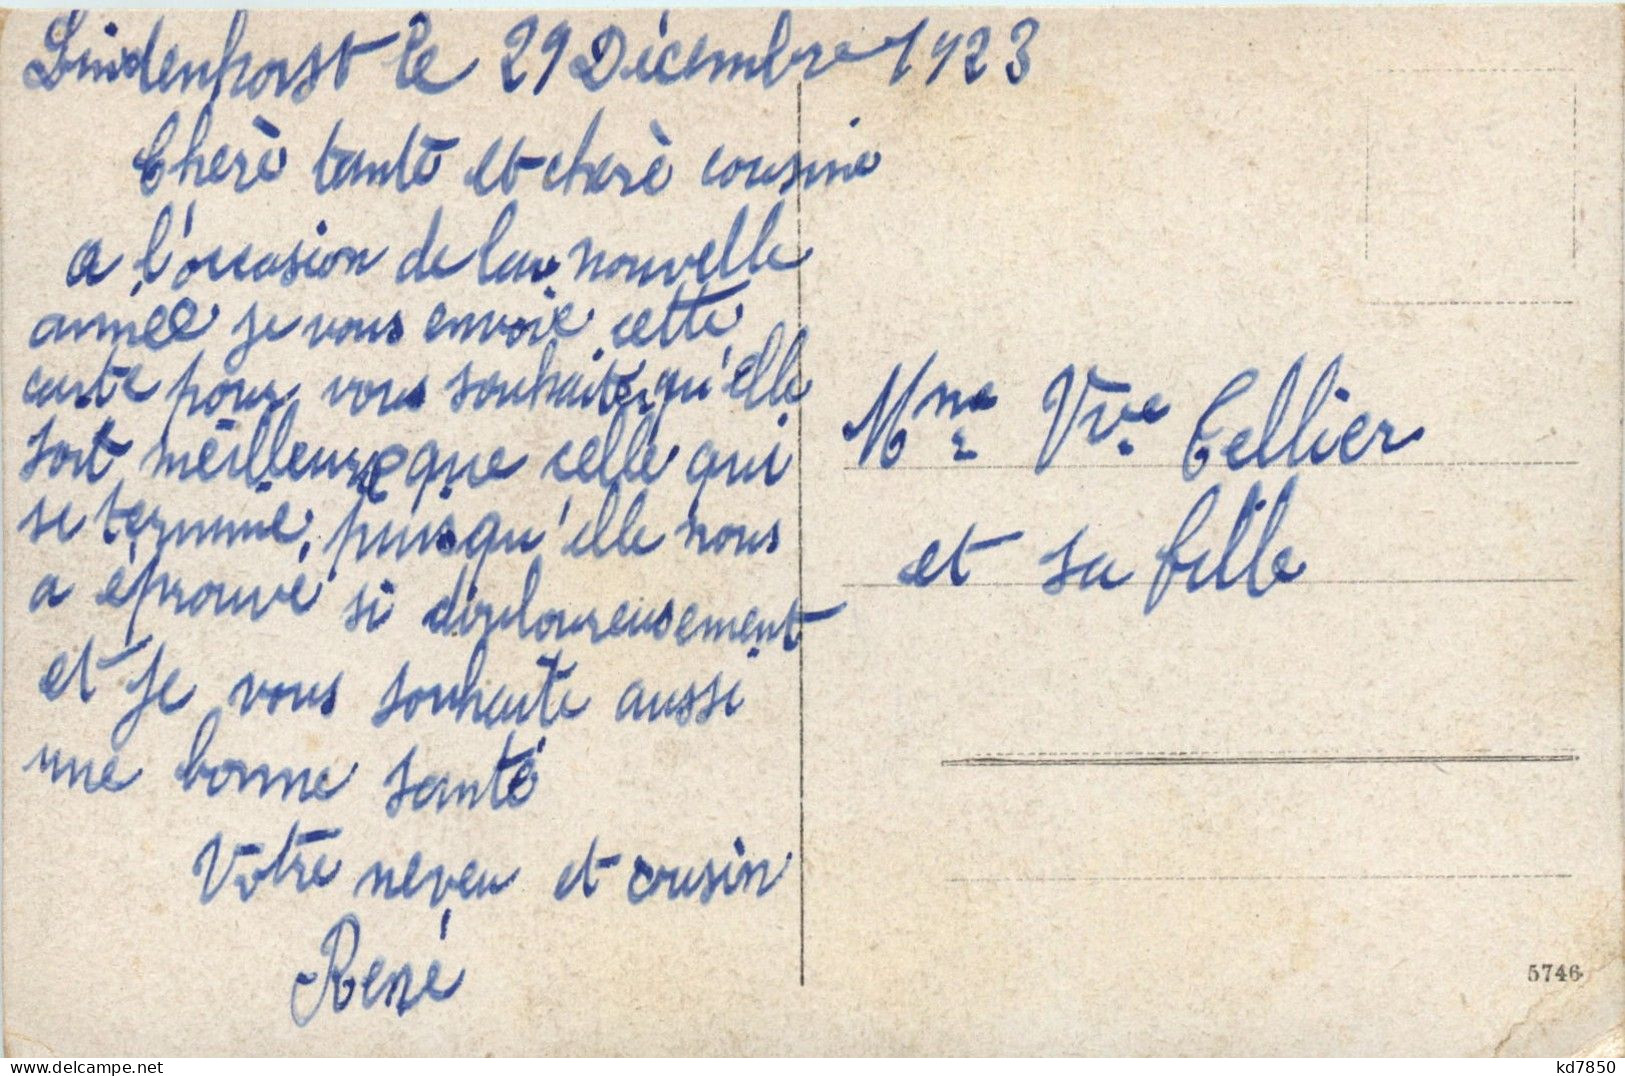 Lindenhorst le 29 Décembre 1923
Cherè tante et cherè cousine
a l'occasion de la nouvelle
année je vous envoie cette
carte pour vous souhaiter qu'elle
soit meilleure que celle qui
se termine, puisqu'elle nous
a éprouvé si douloureusement
et je vous souhaite aussi
une bonne santé
Votre neveu et cousin
René
Mme Vve Cellier
et sa fille
5746
delcampe.net
kd7850